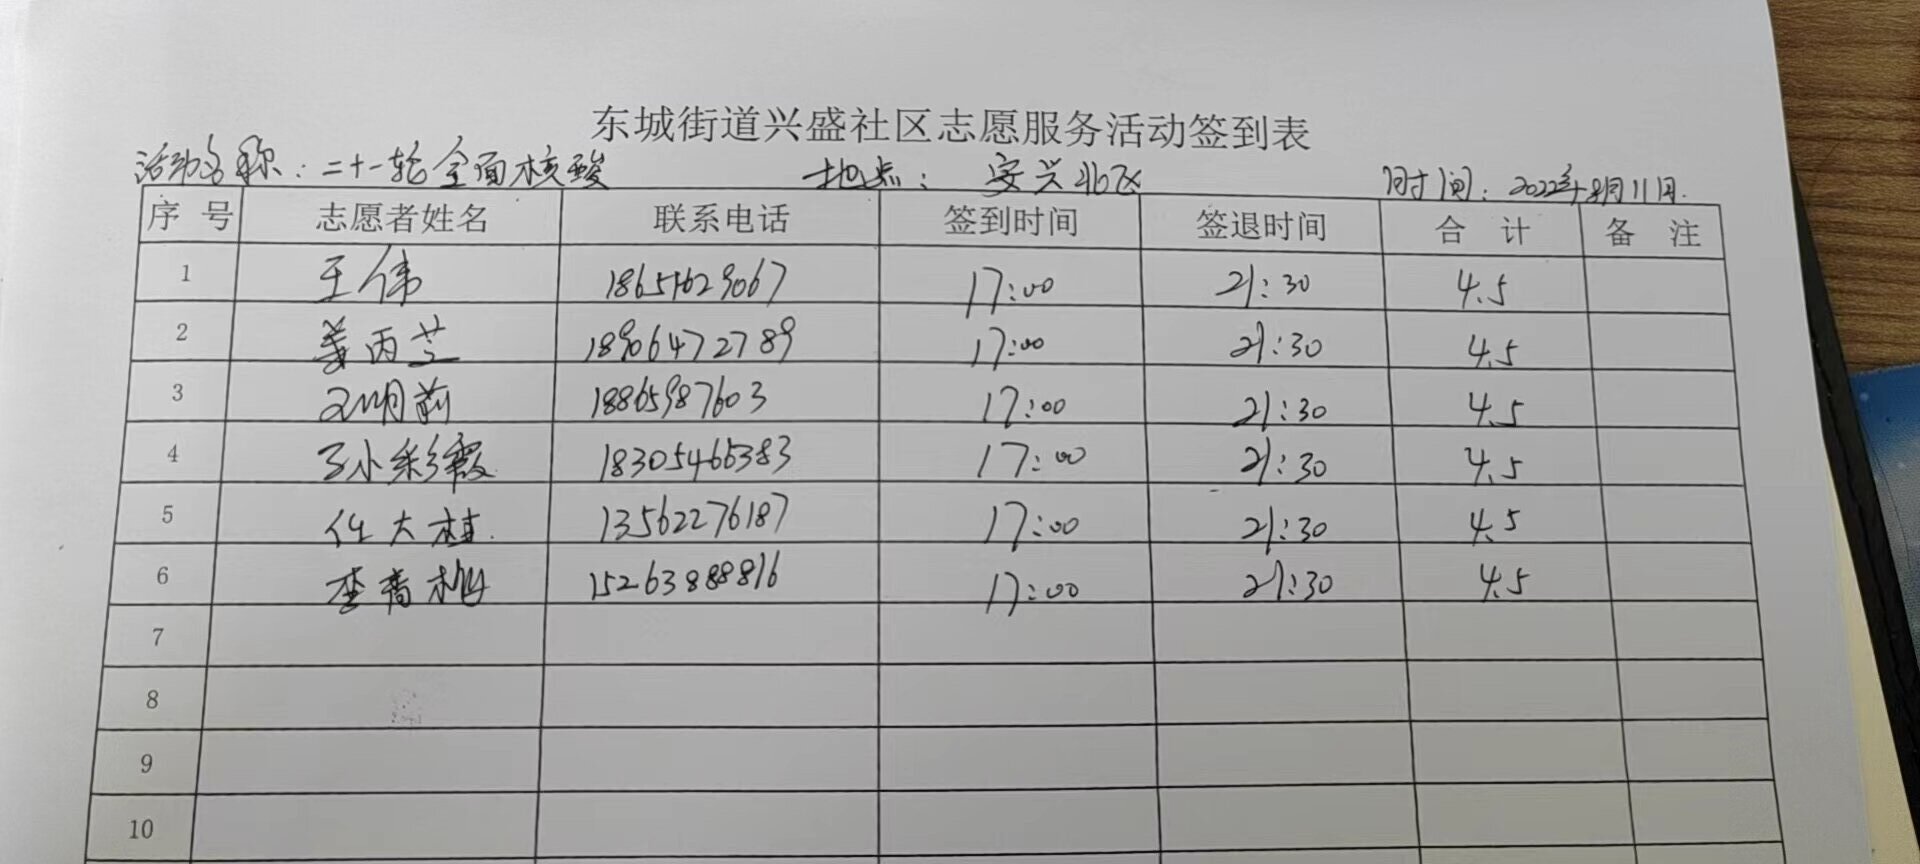 东城街道兴盛社区志愿服务活动签到表
活动名称：二十一轮全面核酸 地点：安兴北区 时间：2022年8月11日.
序号 志愿者姓名 联系电话 签到时间 签退时间 合计 备注
1 王伟 18651629067 17:00 21:30 4.5
2 姜丙芝 18906472789 17:00 21:30 4.5
3 18865987603 17:00 21:30 4.5
4 孙彩霞 18305465383 17:00 21:30 4.5
5 任大 13562276187 17:00 21:30 4.5
6 李 15263888816 17:00 21:30 4.5
7
8
9
10